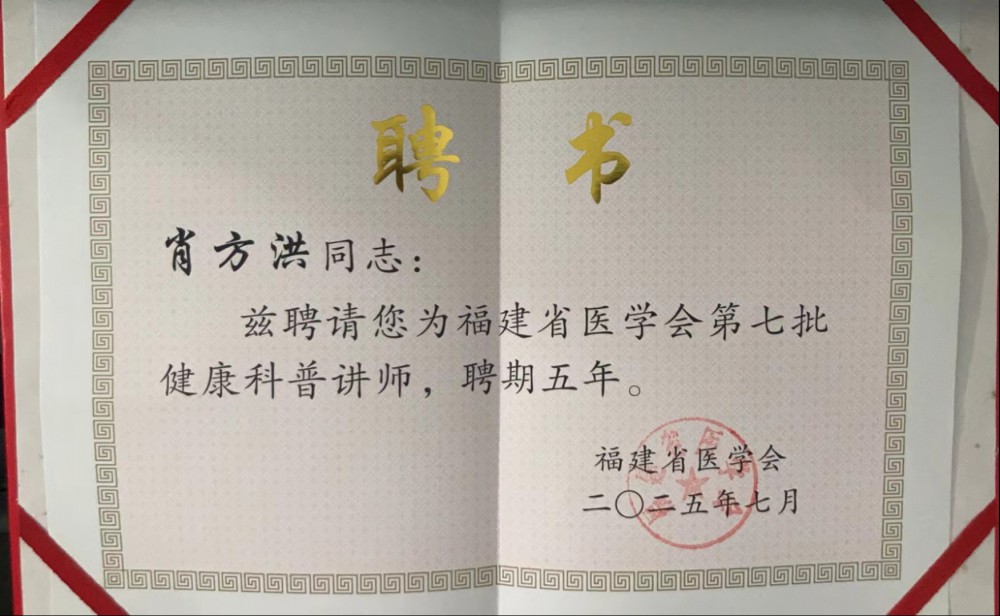 聘 书
肖方洪同志：
兹聘请您为福建省医学会第七批
健康科普讲师，聘期五年。
福建省医学会
二〇二五年七月